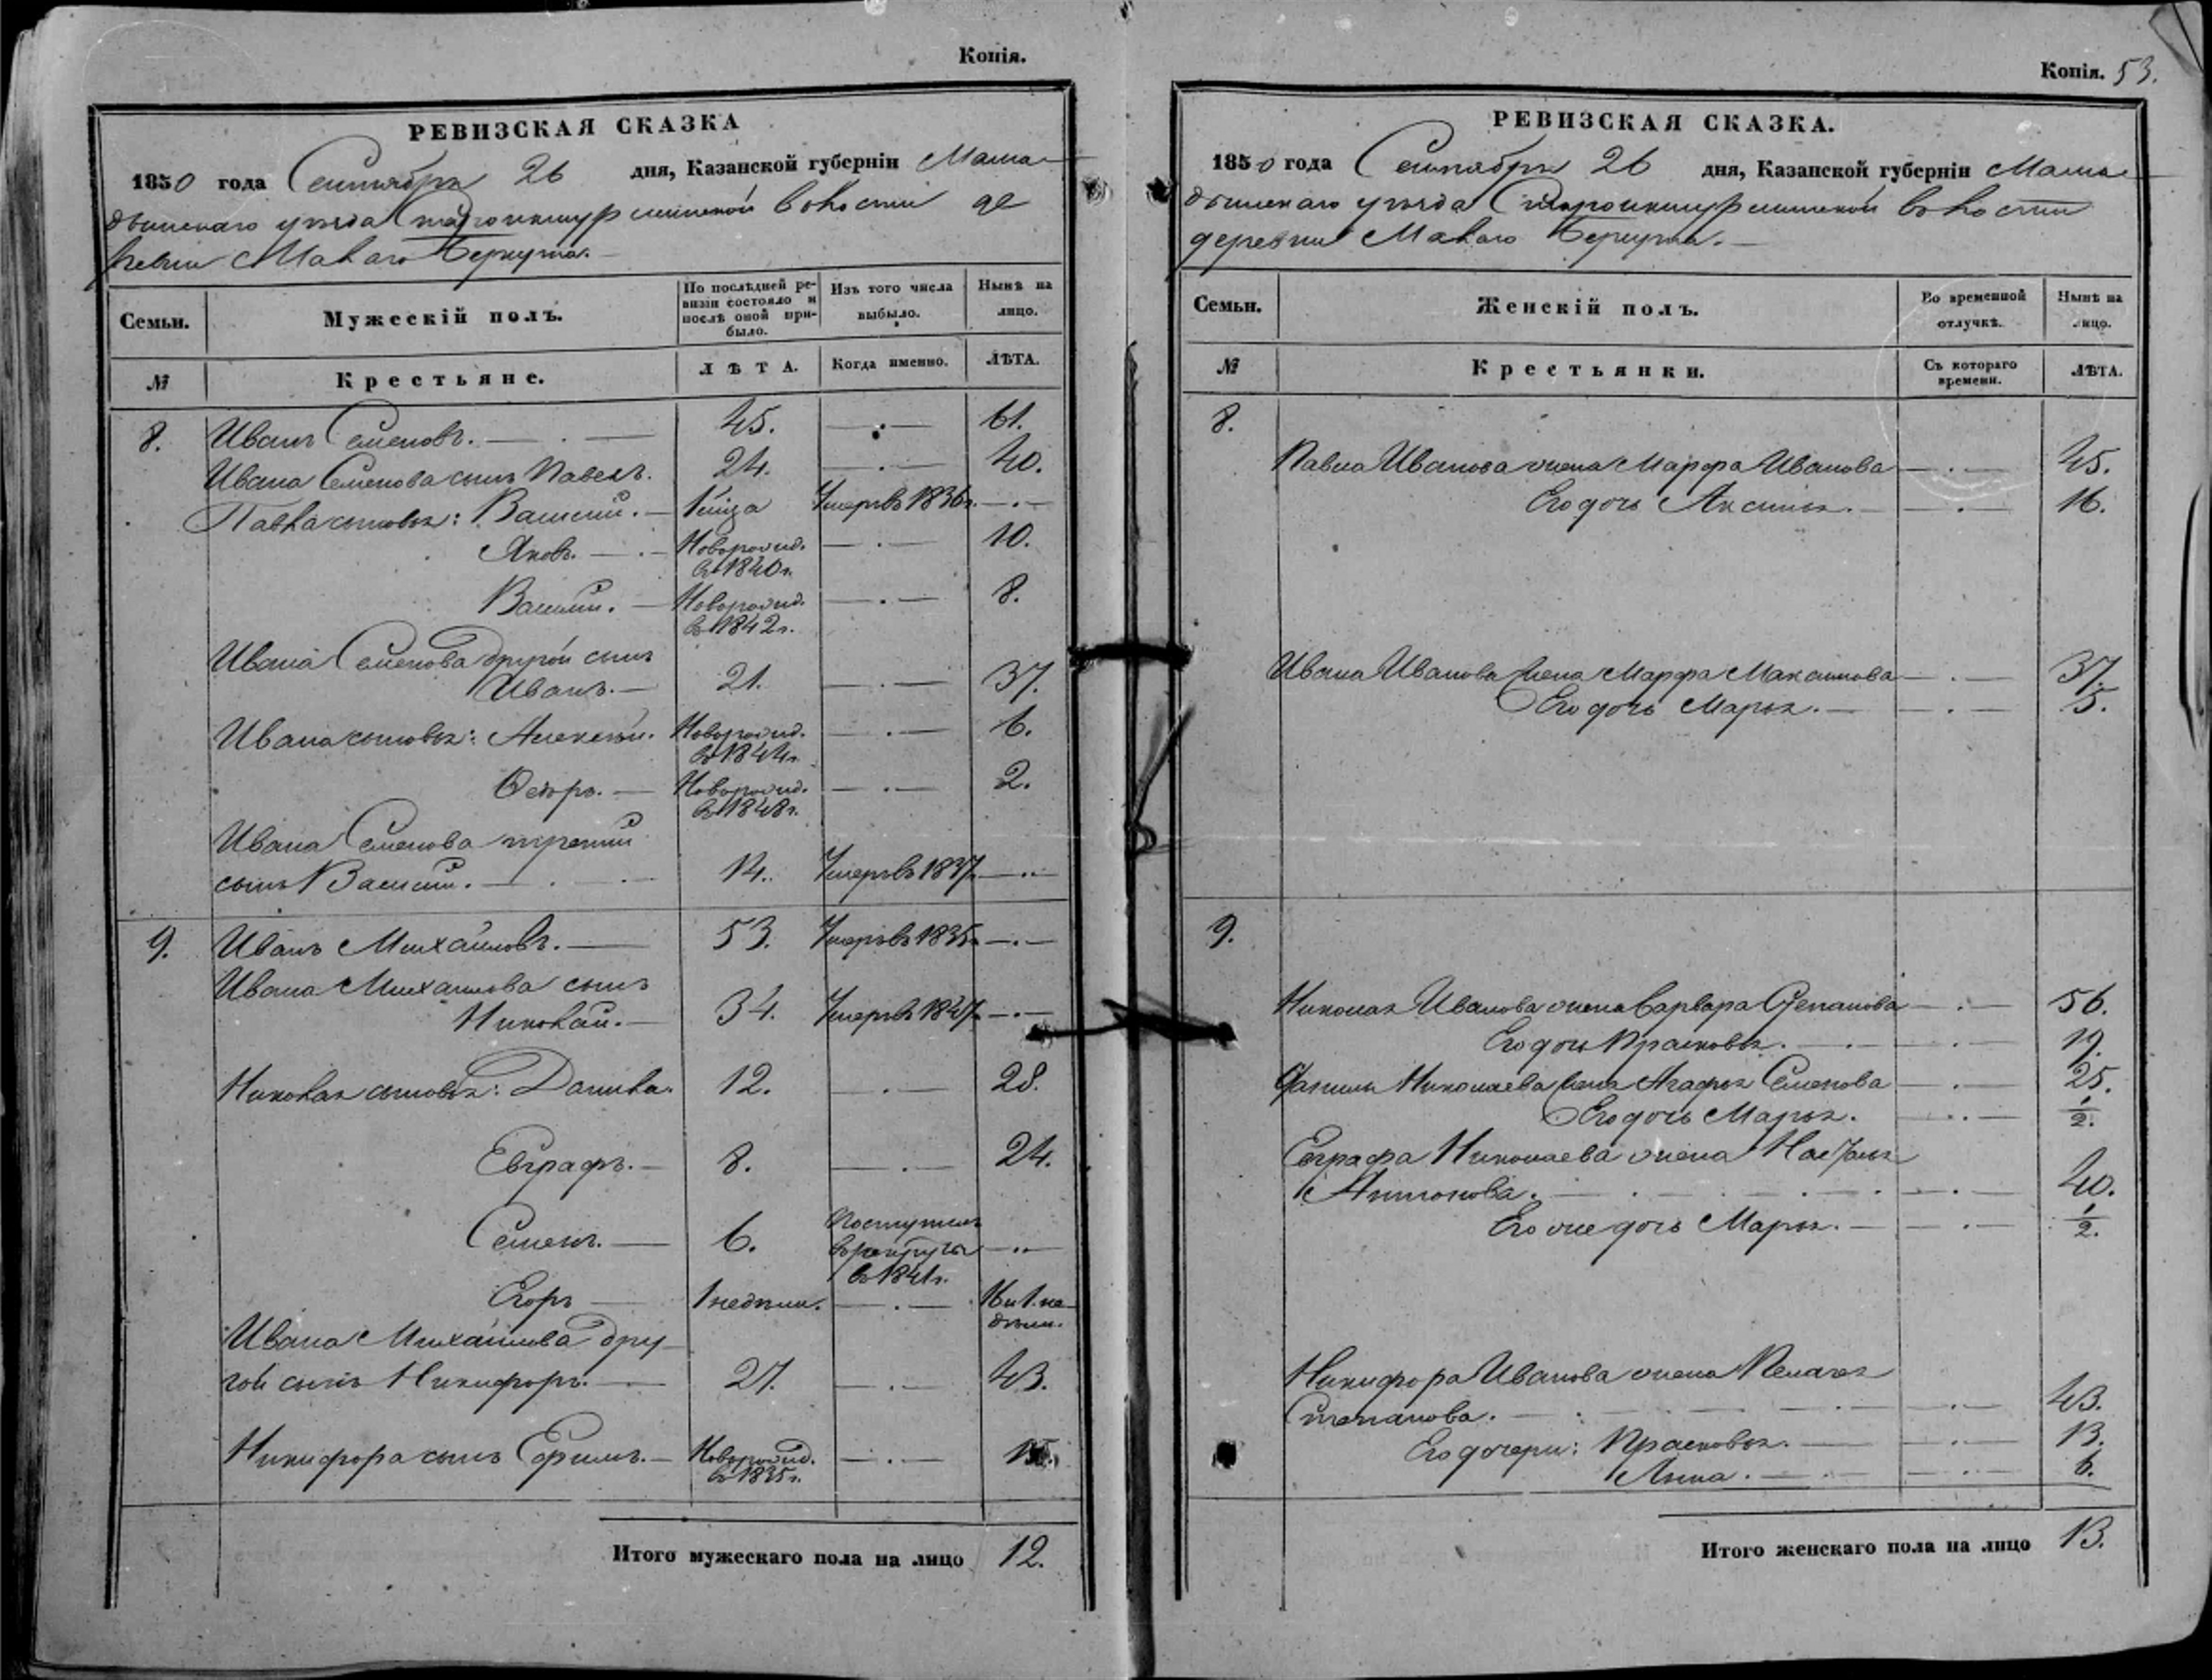 Копія.
РЕВИЗСКАЯ СКАЗКА
1850 года Сентября 26 дня, Казанской губерніи Мама-
дышскаго уѣзда волости де
ревни Малаго Беркута.
Семьи. Мужескій полъ. По послѣдней ре- Изъ того числа Нынѣ на
визіи состояло и выбыло. лицо.
послѣ оной при-
было.
№ Крестьяне. ЛѢТА. Когда именно. ЛѢТА.
8. Иванъ Семеновъ. 45. 61.
Ивана Семенова сынъ Павелъ. 24. 40.
Павла сыновья: Василій. 1 Умеръ въ 1836 г.
Яковъ. Новорожд. 10.
въ 1840 г.
Василій. Новорожд. 8.
въ 1842 г.
Ивана Семенова другой сынъ
Иванъ. 21. 37.
Ивана сыновья: Алексѣй. Новорожд. 6.
въ 1844 г.
Ѳедоръ. Новорожд. 2.
въ 1848 г.
Ивана Семенова третій
сынъ Василій. 14. Умеръ въ 1837
9. Иванъ Михайловъ. 53. Умеръ въ 1835
Ивана Михайлова сынъ
Николай. 34. Умеръ въ 1847
Николая сыновья: Данила. 12. 28.
Евграфъ. 8. 24.
Семенъ. 6. Поступилъ
въ рекруты
въ 1841 г.
Егоръ 1 недѣли. 16 и 1 не-
дѣли.
Ивана Михайлова дру-
гой сынъ Никифоръ. 27. 43.
Никифора сынъ Ефимъ. Новорожд. 15.
въ 1835 г.
Итого мужескаго пола на лицо 12.
Копія. 53.
РЕВИЗСКАЯ СКАЗКА.
1850 года Сентября 26 дня, Казанской губерніи Мама-
дышскаго уѣзда волости
деревни Малаго Беркута.
Семьи. Женскій полъ. Во временной Нынѣ на
отлучкѣ. лицо.
№ Крестьянки. Съ котораго ЛѢТА.
времени.
8.
Павла Иванова жена Марфа Иванова 45.
Его дочь Аксинья. 16.
Ивана Иванова жена Марфа Максимова 37.
Его дочь Марья. 5.
9.
Николая Иванова жена Варвара Степанова 56.
Его дочь Прасковья. 19.
Данилы Николаева жена Агафья Семенова 25.
Его дочь Марья. 1/2.
Евграфа Николаева жена Настасья
Антонова. 40.
Его же дочь Марья. 1/2.
Никифора Иванова жена Пелагея
Степанова. 43.
Его дочери: Прасковья. 13.
Анна. 6.
Итого женскаго пола на лицо 13.